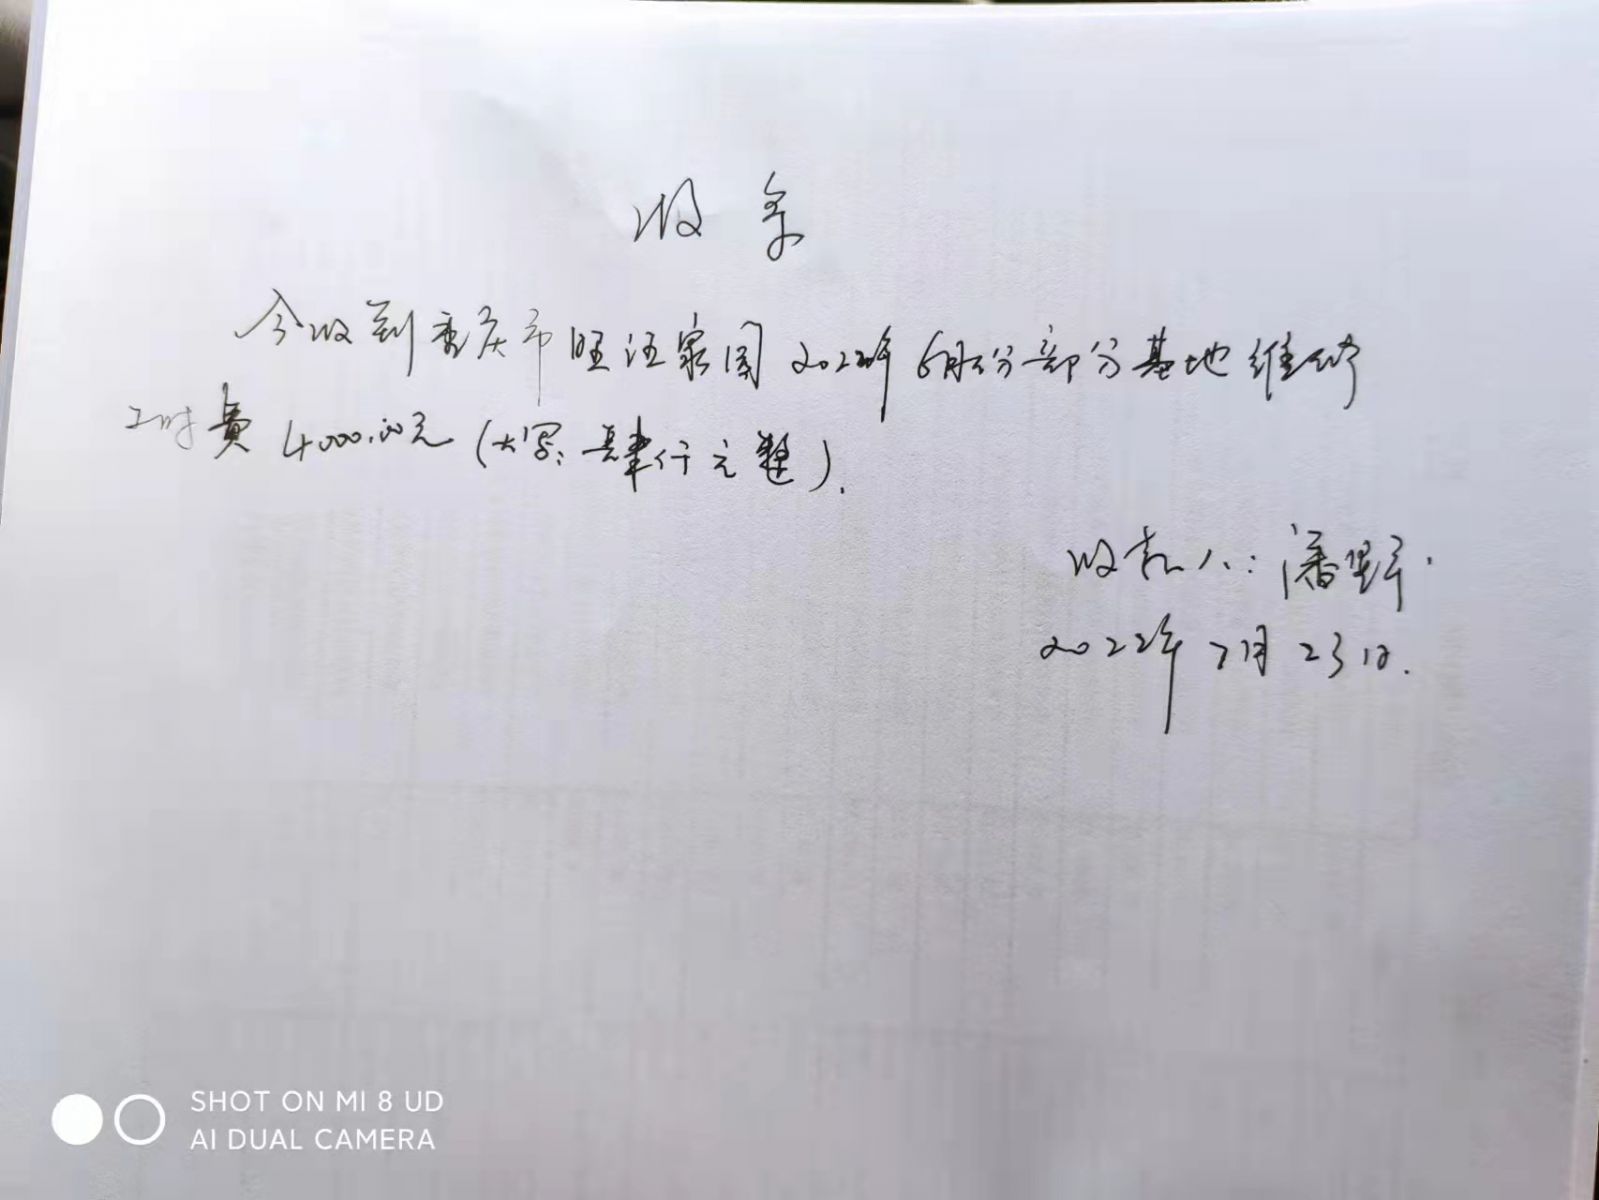 收条
今收到重庆市旺汪家园2022年6月份部分基地维修
工时费4000.00元(大写:肆仟元整).
收款人:潘野.
2022年7月23日.
SHOT ON MI 8 UD
AI DUAL CAMERA